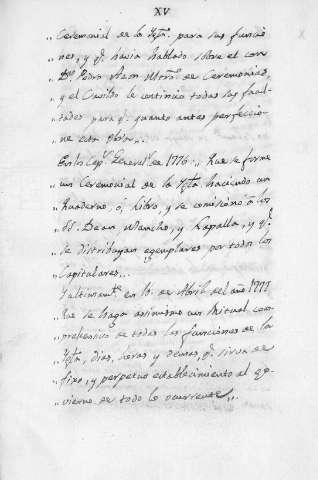 XV
„ Ceremonial de la Ygª. para sus funcio
„ nes, y qᵉ. havia hablado sobre el con
„ Dⁿ. Pedro Aam Mtrõ. de Ceremonias,
„ y el Cavildo le continúo todas las facul
„ tades para qᵉ. quanto antes perfeccio
„ ne esta obra„.
En los Capˢ. Generalˢ. de 1776 „ Que se forme
„ un Ceremonial de la Ygª. haciendo un
„ Quaderno, ó, Libro, y se comisionó á los
„ SS. Dean Mancho, y Lapalla, y qᵉ.
„ se distribuyan egemplares por todos los
„ Capitulares„.
Yultimamᵗᵉ. en 16 de Abril del año 1777
„ Que se haga asimismo un Ritual com
„ prehensivo de todas las funciones de la
„ Ygª., dias, horas y demas, qᵉ. sirva de
„ fixo, y perpetuo establecimiento al go
„ vierno de todo lo ocurrente„.